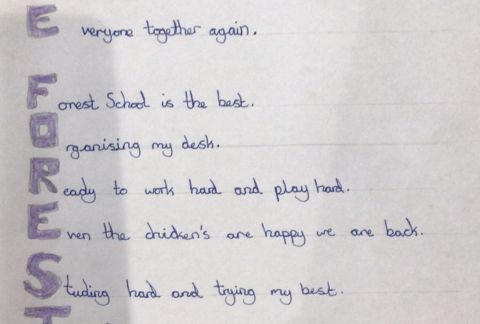 Everyone together again.
Forest School is the best.
Organising my desk.
Ready to work hard and play hard.
Even the chicken's are happy we are back.
Studing hard and trying my best.
T